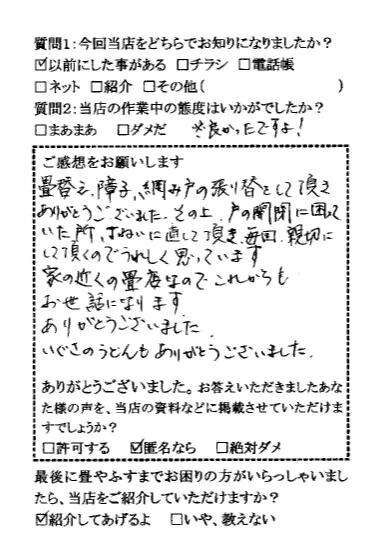 質問1：今回当店をどちらでお知りになりましたか？
☑以前にした事がある □チラシ □電話帳
□ネット □紹介 □その他( )
質問2：当店の作業中の態度はいかがでしたか？
□まあまあ □ダメだ ※良かったですよ！
ご感想をお願いします
畳替え、障子、網み戸の張り替として頂き
ありがとうございました。その上、戸の開閉に困って
いた所、ていねいに直して頂き、毎回、親切に
して頂くのでうれしく思っています
家の近くの畳屋なので これからも
お世話になります
ありがとうございました。
いぐさのうどんもありがとうございました。
ありがとうございました。お答えいただきましたあな
た様の声を、当店の資料などに掲載させていただけま
すでしょうか？
□許可する ☑匿名なら □絶対ダメ
最後に畳やふすまでお困りの方がいらっしゃいまし
たら、当店をご紹介していただけますか？
☑紹介してあげるよ □いや、教えない